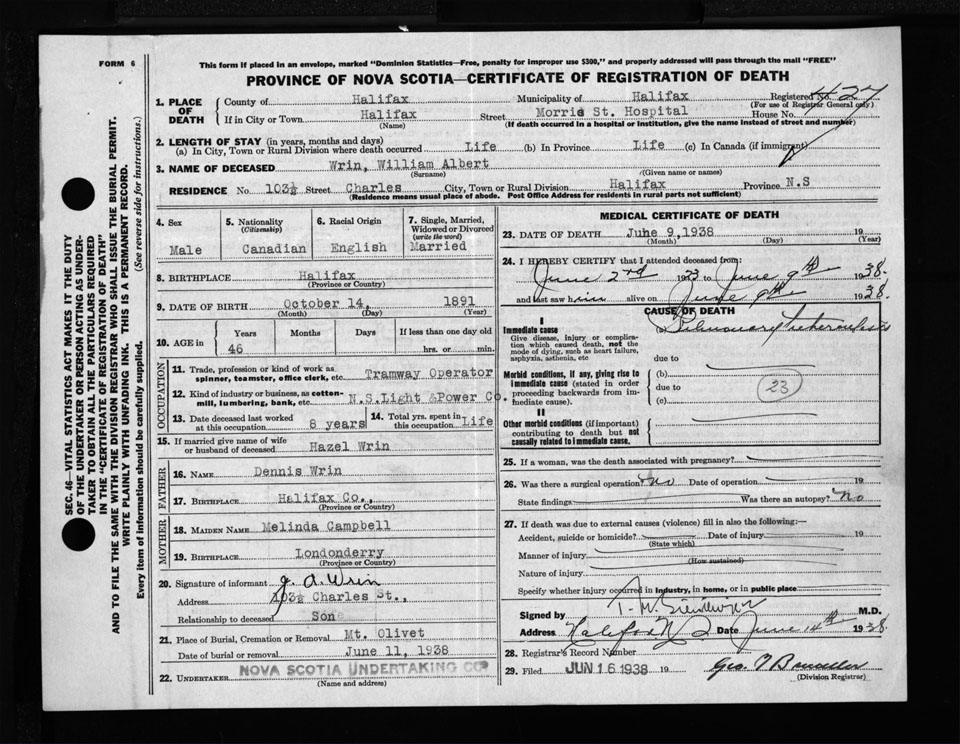 FORM 6
This form if placed in an envelope, marked "Dominion Statistics—Free, penalty for improper use $300," and properly addressed will pass through the mail "FREE"
PROVINCE OF NOVA SCOTIA—CERTIFICATE OF REGISTRATION OF DEATH
SEC. 46—VITAL STATISTICS ACT MAKES IT THE DUTY
OF THE UNDERTAKER OR PERSON ACTING AS UNDER-
TAKER TO OBTAIN ALL THE PARTICULARS REQUIRED
IN THE "CERTIFICATE OF REGISTRATION OF DEATH"
AND TO FILE THE SAME WITH THE DIVISION REGISTRAR WHO SHALL ISSUE THE BURIAL PERMIT.
WRITE PLAINLY WITH UNFADING INK. THIS IS A PERMANENT RECORD.
Every item of information should be carefully supplied. (See reverse side for instructions.)
1. PLACE OF DEATH
County of Halifax Municipality of Halifax Registered No. 427
(For use of Registrar General only)
If in City or Town Halifax Street Morris St. Hospital House No.
(Name) (If death occurred in a hospital or institution, give the name instead of street and number)
2. LENGTH OF STAY (in years, months and days)
(a) In City, Town or Rural Division where death occurred Life (b) In Province Life (c) In Canada (if immigrant)
3. NAME OF DECEASED Wrin, William Albert
(Surname) (Given name or names)
RESIDENCE No. 103½ Street Charles City, Town or Rural Division Halifax Province N.S
(Residence means usual place of abode. Post Office Address for residents in rural parts not sufficient)
4. Sex
Male
5. Nationality
(Citizenship)
Canadian
6. Racial Origin
English
7. Single, Married,
Widowed or Divorced
(write the word)
Married
8. BIRTHPLACE Halifax
(Province or Country)
9. DATE OF BIRTH October 14, 1891
(Month) (Day) (Year)
10. AGE in
Years Months Days If less than one day old
46 hrs. or min.
OCCUPATION
11. Trade, profession or kind of work as
spinner, teamster, office clerk, etc. Tramway Operator
12. Kind of industry or business, as cotton-
mill, lumbering, bank, etc. N.S.Light &Power Co.
13. Date deceased last worked
at this occupation 8 years
14. Total yrs. spent in
this occupation Life
15. If married give name of wife
or husband of deceased Hazel Wrin
FATHER
16. NAME Dennis Wrin
17. BIRTHPLACE Halifax Co.,
(Province or Country)
MOTHER
18. MAIDEN NAME Melinda Campbell
19. BIRTHPLACE Londonderry
(Province or Country)
20. Signature of informant J. A. Wrin
Address 103½ Charles St.,
Relationship to deceased Son
21. Place of Burial, Cremation or Removal Mt. Olivet
Date of burial or removal June 11, 1938
22. UNDERTAKER NOVA SCOTIA UNDERTAKING CO
(Name and address)
MEDICAL CERTIFICATE OF DEATH
23. DATE OF DEATH June 9,1938 19
(Month) (Day) (Year)
24. I HEREBY CERTIFY that I attended deceased from:
June 2nd 1923 to June 9th 1938.
and last saw him alive on June 9th 1938.
CAUSE OF DEATH
I
Immediate cause
Give disease, injury or complica-
tion which caused death, not the
mode of dying, such as heart failure,
asphyxia, asthenia, etc
(a) Pulmonary tuberculosis
due to
Morbid conditions, if any, giving rise to
immediate cause (stated in order
proceeding backwards from im-
mediate cause).
(b)
due to
(c)
23
II
Other morbid conditions (if important)
contributing to death but not
causally related to immediate cause.
25. If a woman, was the death associated with pregnancy?
26. Was there a surgical operation? No Date of operation 19
State findings Was there an autopsy? No
27. If death was due to external causes (violence) fill in also the following:—
Accident, suicide or homicide? Date of injury 19
(State which)
Manner of injury
(How sustained)
Nature of injury
Specify whether injury occurred in industry, in home, or in public place
Signed by T. M. M.D.
Address Halifax N.S. Date June 14th 1938.
28. Registrar's Record Number
29. Filed JUN 16 1938 19 Geo.
(Division Registrar)